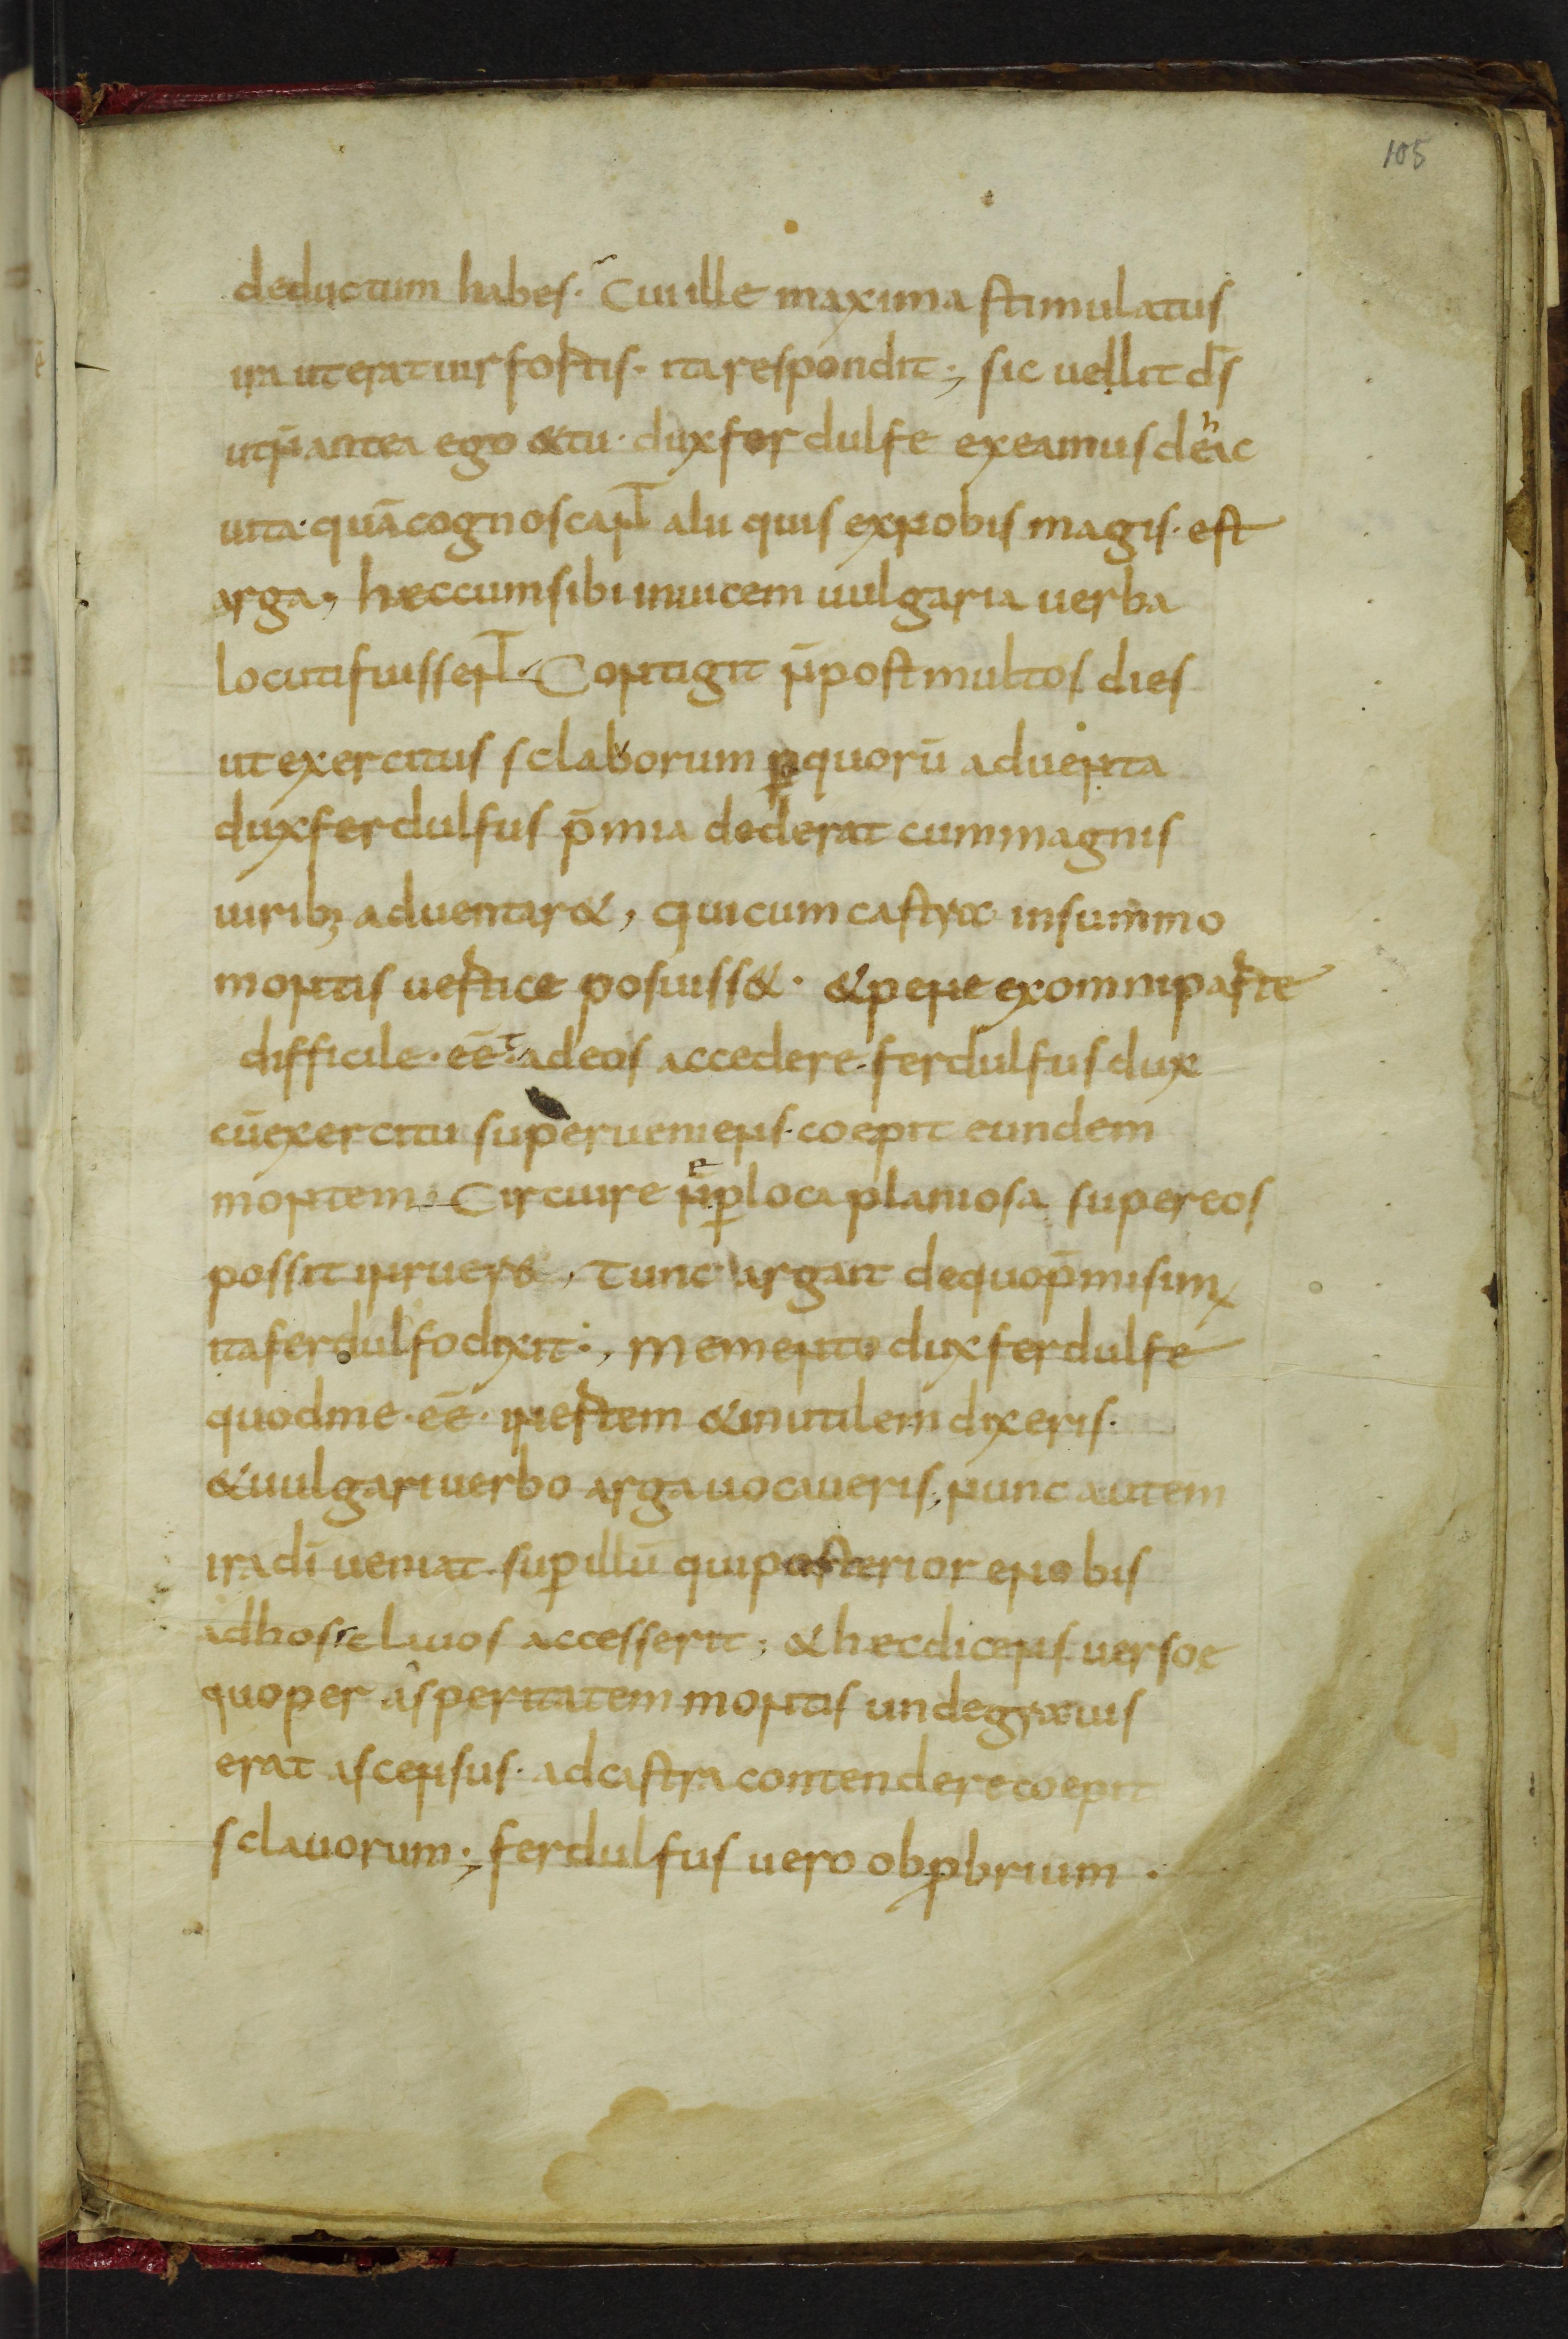 105
deductum habes. Cui ille maxima stimulatus
ira ut erat uir fortis. ita respondit; sic uellit d̄s
ut n̄ antea ego & tu. dux ferdulfe exeamus de hac
uita. quā cognoscant alii quis ex nobis magis. est
arga; hæc cum sibi inuicem uulgaria uerba
locuti fuissent. Contigit n̄ post multos dies
ut exercitus sclauorum ꝓ quorū aduenta
dux ferdulfus p̄mia dederat cum magnis
uirib; aduentar&, qui cum castra in summo
montis uertice posuiss&. & pene ex omni parte
difficile. eē&#773;t ad eos accedere. ferdulfus dux
cū exercitu superueniens. coepit eundem
montem. Circuire n̄ ꝑ loca planiosa super eos
possit inruere, Tunc argait de quo p̄misim
ita ferdulfo dixit; Memento dux ferdulfe
quod me. eē. inertem & inutilem dixeris.
& uulgari uerbo arga uocaueris, nunc autem
ira dī ueniat. suꝑ illū qui posterior e nobis
ad hos sclauos accesserit; & hæc dicens uerso e
quo per asperitatem montis unde grauis
erat ascensus. ad castra contendere coepit
sclauorum; ferdulfus uero obꝓbrium.